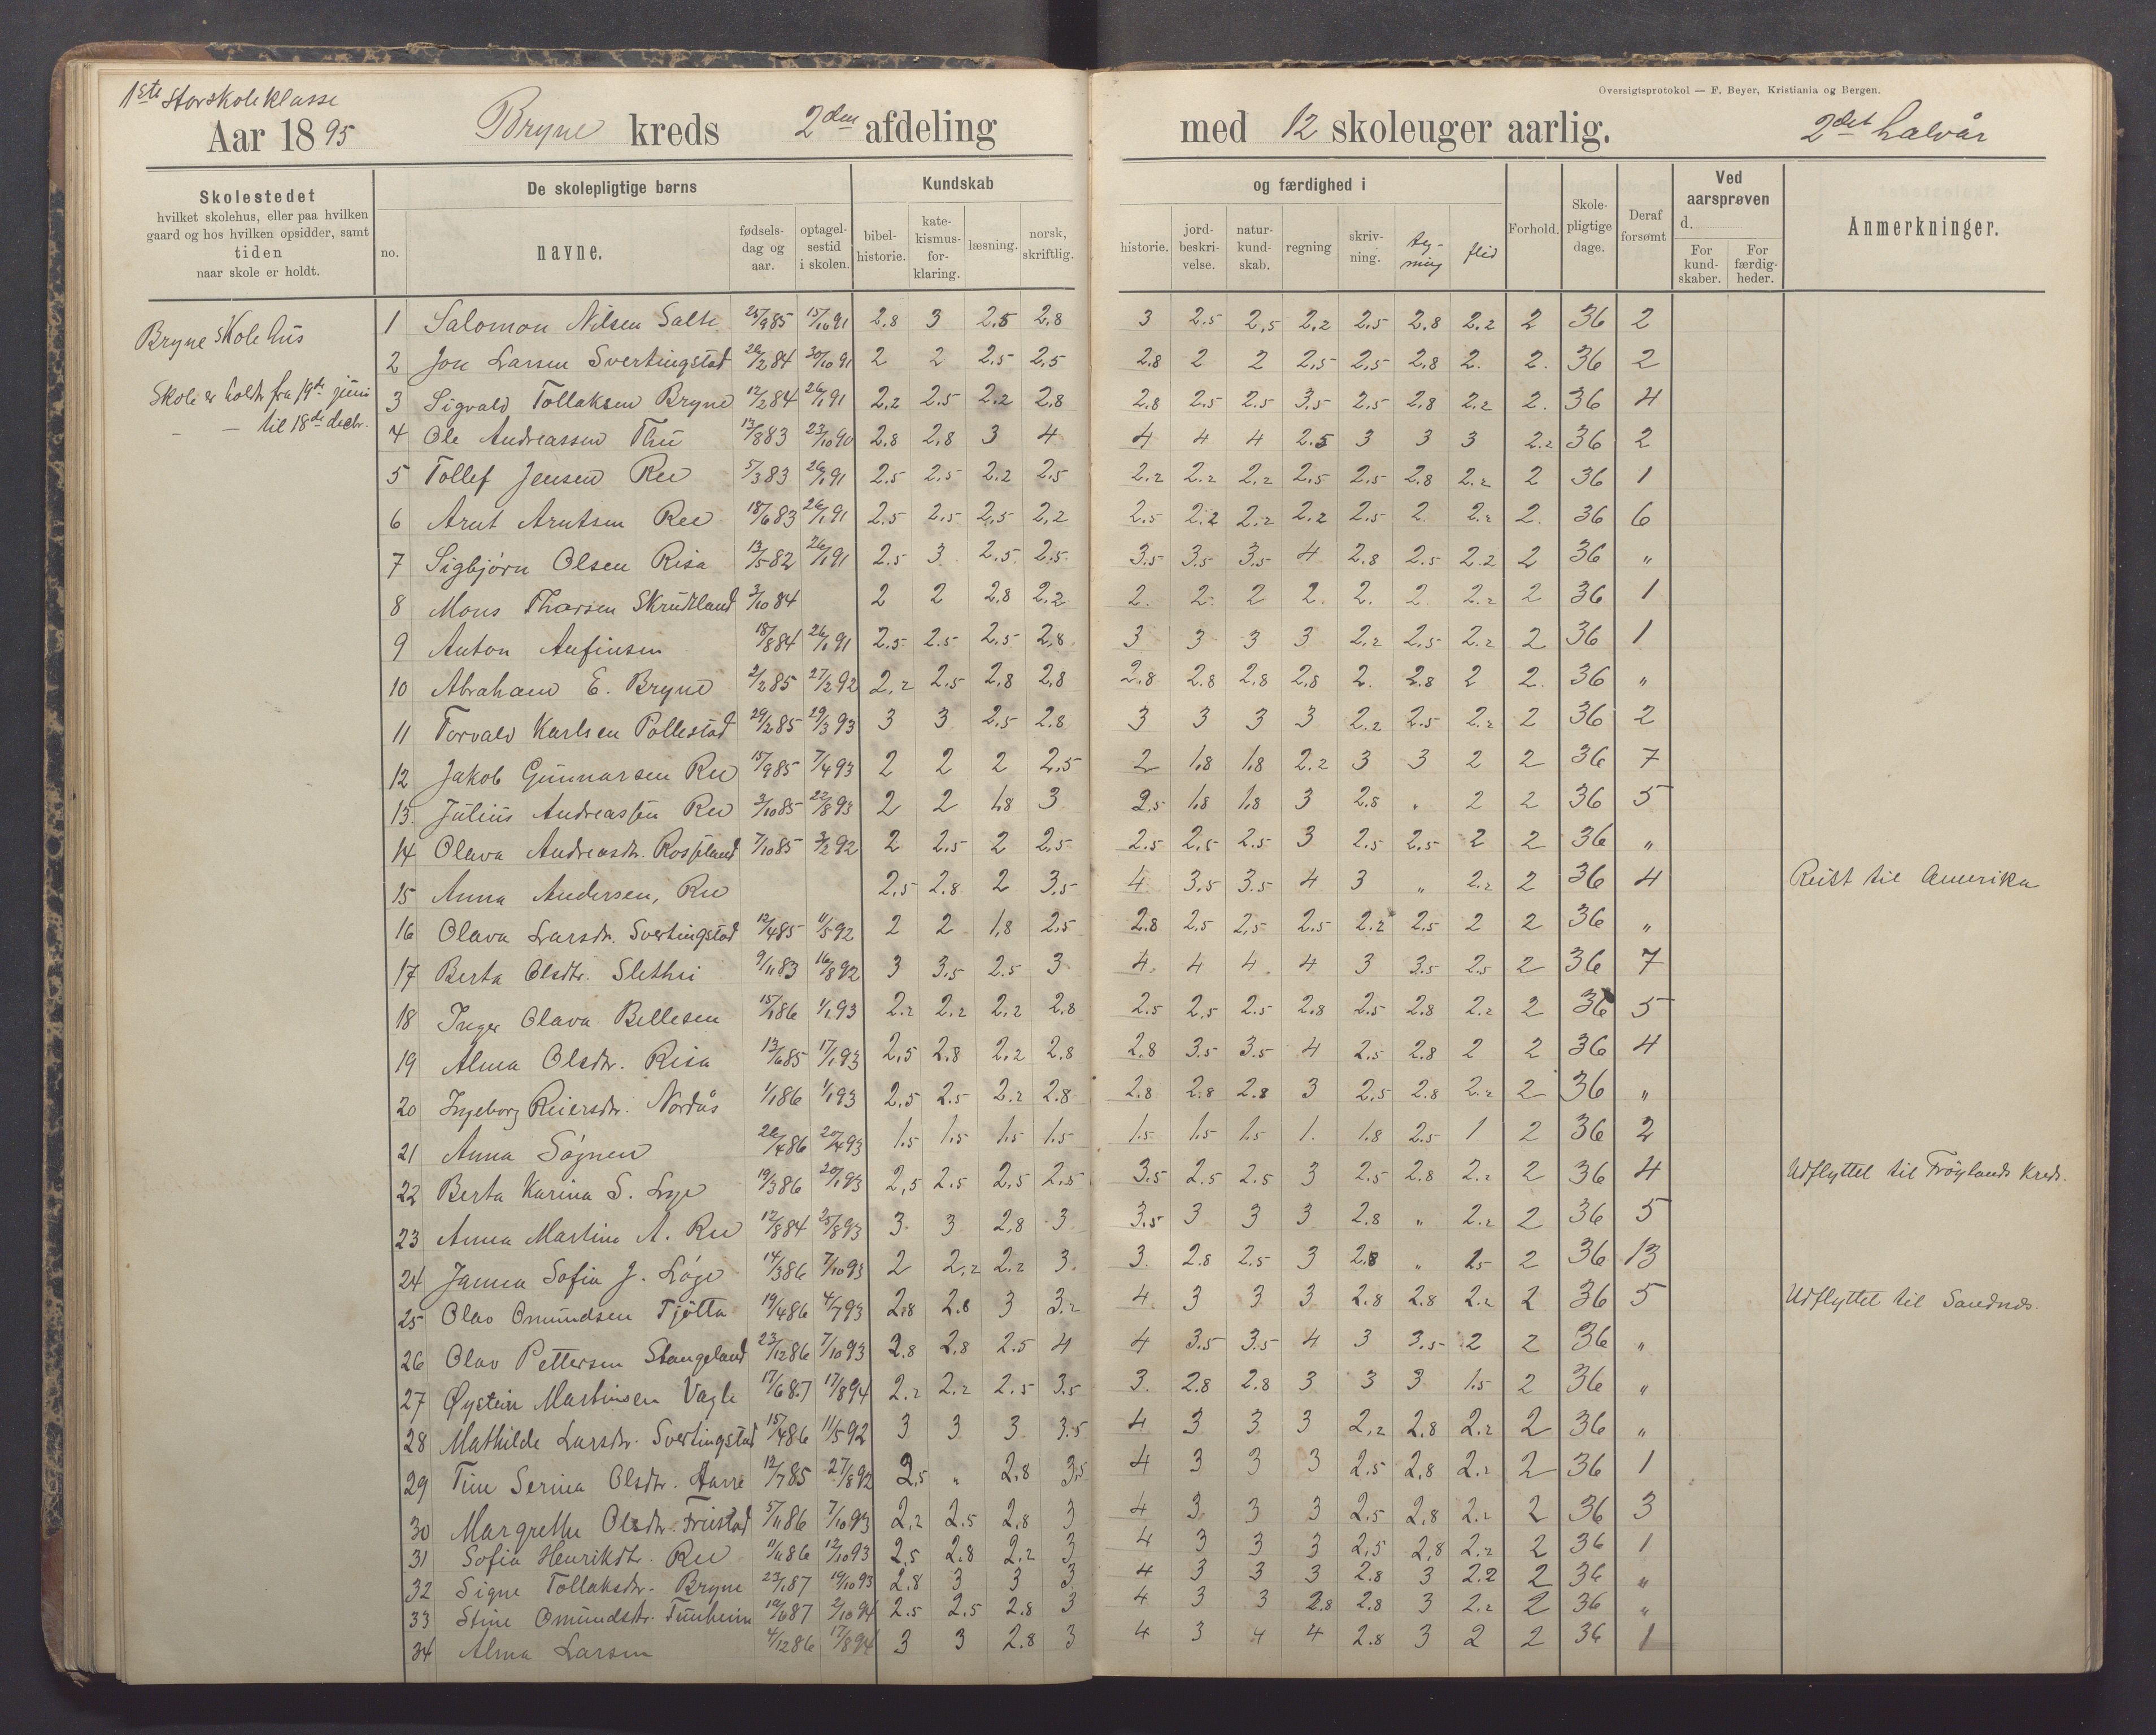 1ste storskoleklasse
Oversigtsprotokol — F. Beyer, Kristiania og Bergen.
Aar 1895 Bryne kreds 2den afdeling med 12 skoleuger aarlig. 2det halvår
Skolestedet
hvilket skolehus, eller paa hvilken
gaard og hos hvilken opsidder, samt
tiden
naar skole er holdt.
De skolepligtige børns
no. navne. fødsels-dag og aar. optagel-sestid i skolen.
Kundskab og færdighed i
bibel-historie. kate-kismus-for-klaring. læsning. norsk, skriftlig. historie. jord-beskri-velse. natur-kund-skab. regning skriv-ning. teg-ning flid
Forhold. Skole-pligtige dage. Deraf forsømt
Ved aarsprøven d.
For kund-skaber. For færdig-heder.
Anmerkninger.
Bryne skolehus
Skole er holdt fra 19de juni
— — til 18de decbr.
1 Salomon Nilsen Salte 25/9 85 15/10 91 2,8 3 2,5 2,8 3 2.5 2,5 2,2 2,5 2,8 2.2 2 36 2
2 Jon Larsen Svertingstad 28/2 84 30/10 91 2 2 2,5 2,5 2.8 2 2 2,5 2,5 2,8 2. 2. 36 2
3 Sigvald Tollaksen Bryne 12/2 84 26/1 91 2,2 2.5 2.2 2,8 2.8 2.5 2.5 3.5 2.5 2.8 2.2 2. 36 4
4 Ole Andreassen Thu 13/8 83 23/10 90 2.8 2,8 3 4 4 4 4 2.5 3 3 3 2.2 36 2
5 Tollef Jensen Ree 5/3 83 26/1 91 2.5 2.5 2.2 2.5 2.2 2.2 2.2 2.5 2.5 2.8 2.2 2 36 1
6 Arnt Arntsen Ree 18/6 83 26/1 91 2.5 2.5 2,5 2,2 2.5 2.2 2.2 2.2 2.5 2 2.2 2. 36 6
7 Sigbjørn Olsen Risa 13/5 82 26/1 91 2.5 3 2.5 2.5 3.5 3.5 3.5 4 2.8 2.5 2.2 2 36 "
8 Mons Thorsen Skrudland 3/10 84 2 2 2,8 2,2 2. 2. 2 2. 2. 2. 2.2 2 36 1
9 Anton Anfinsen 18/8 84 26/1 91 2.5 2.5 2.5 2,8 3 3 3 3 2.2 2.5 2.2 2 36 1
10 Abraham E. Bryne 2/2 85 27/2 92 2,2 2.5 2,8 2,8 2.8 2.8 2.8 2,8 2. 2.8 2 2. 36 "
11 Torvald Karlsen Pollestad 29/2 85 29/3 93 3 3 2,5 2.8 3 3 3 3 2.2 2.5 2.2 2 36 2
12 Jakob Gunnarsen Ree 15/9 85 7/4 93 2 2 2 2,5 2 1,8 1,8 2.2 3 3 2 2 36 7
13. Julius Andreassen Ree 3/10 85 22/8 93 2 2 1,8 3 2.5 1,8 1,8 3 2.8 " 2 2 36 5
14 Olava Andreasdtr. Rosseland 7/10 85 3/2 92 2 2.5 2 2,5 2.5 2,5 2.5 3 2.5 2,5 2 2 36 "
15 Anna Andersen, Ree 2,5 2.8 2 3,5 4 3.5 3.5 4 3 " 2.2 2 36 4 Reist til Amerika
16 Olava Larsdtr. Svertingstad 12/4 85 11/5 92 2 2 1,8 2.5 2.8 2,5 2,5 2.5 2.2 2.5 2 2 36 "
17 Berta Olsdtr. Slethei 9/11 83 16/8 92 3 3,5 2.5 3 4. 4 4. 4 3 3.5 2.5 2 36 7
18 Inger Olava Bellesen 15/1 86 1/1 93 2.2 2.2 2,2 2,8 2.5 2,5 2.5 2,8 2.5 2.8 2.2 2 36 5
19 Alma Olsdtr. Risa 13/6 85 17/1 93 2,5 2.8 2,2 2.8 2.8 3.5 3.5 4 2.5 2.8 2 2 36 4
20 Ingeborg Reiersdtr. Nordås 1/1 86 1/1 93 2,5 2.5 2.2 2.8 2.8 2.8 2.8 3 2,5 2.8 2.2 2 36 "
21 Anna Søgnen 26/4 86 20/4 93 1.5 1.5 1.5 1.5 1.5 1.5 1.5 1. 1.8 2.5 1 2 36 2
22 Berta Karina S. Lye 19/3 86 20/1 93 2,5 2.5 2,5 2,5 3.5 2.5 2.5 3 2.5 2.8 2.2 2 36 4 Udflyttet til Frøylands Kreds.
23 Anna Martine A. Ree 12/8 84 25/8 93 3. 3 2,8 3 3.5 3 3 3 2.8 " 2.2 2 36 5
24 Janna Sofia J. Løge 14/3 86 7/10 93 2 2,2 2.2 3. 3. 2.8 2.5 3 2.8 " 2.5 2 36 13
25 Olav Omundsen Tjøtta 19/4 86 4/7 93 2.8 2.8 3 3.2 4. 3 3 3 2.8 2.8 2.2 2 36 5 Udflyttet til Sandnes.
26 Olav Pettersen Stangeland 23/12 86 7/10 93 2.8 2,8 2.5 4 4 3.5 3.5 4 3 3.5 2 2 36 "
27 Øystein Martinsen Vagle 17/6 87 17/8 94 2.2 2.2 2.5 3.5 3. 2.8 2.8 3 3 3 1.5 2 36 "
28 Mathilde Larsdtr. Svertingstad 15/4 86 11/5 92 3 3 3 3.5 4 3 3 3 2,2 2,8 2.2 2 36 "
29 Tine Serina Olsdtr. Aarre 12/7 85 27/8 92 2,5 " 2,8 3,5 4 3 3 3 2.5 2,8 2.2 2 36 1
30 Margrethe Olsdtr. Friestad 5/11 86 7/10 93 2,2 2.5 2,8 3 4 3 3 3 2,5 2,8 2.2 2 36 3
31 Sofia Henrikdtr. Ree 11/11 86 12/10 93 2,5 2.8 2.2 3 4 3 3 3 2,5 2,8 2.2 2 36 1
32 Signe Tollaksdtr. Bryne 23/1 87 19/10 93 2.8 3 3 3 4 3 3 3 2.8 3 2.2 2 36 "
33 Stine Omundsdtr. Tunheim 19/6 87 2/10 94 2.5 2,5 2.8 3 4 3 3 2.8 2.8 3 2.2 2 36 "
34 Alma Larsen 4/12 86 17/8 94 3 3 2.8 3 4 3 4 4 2.8 3 2 2 36 1